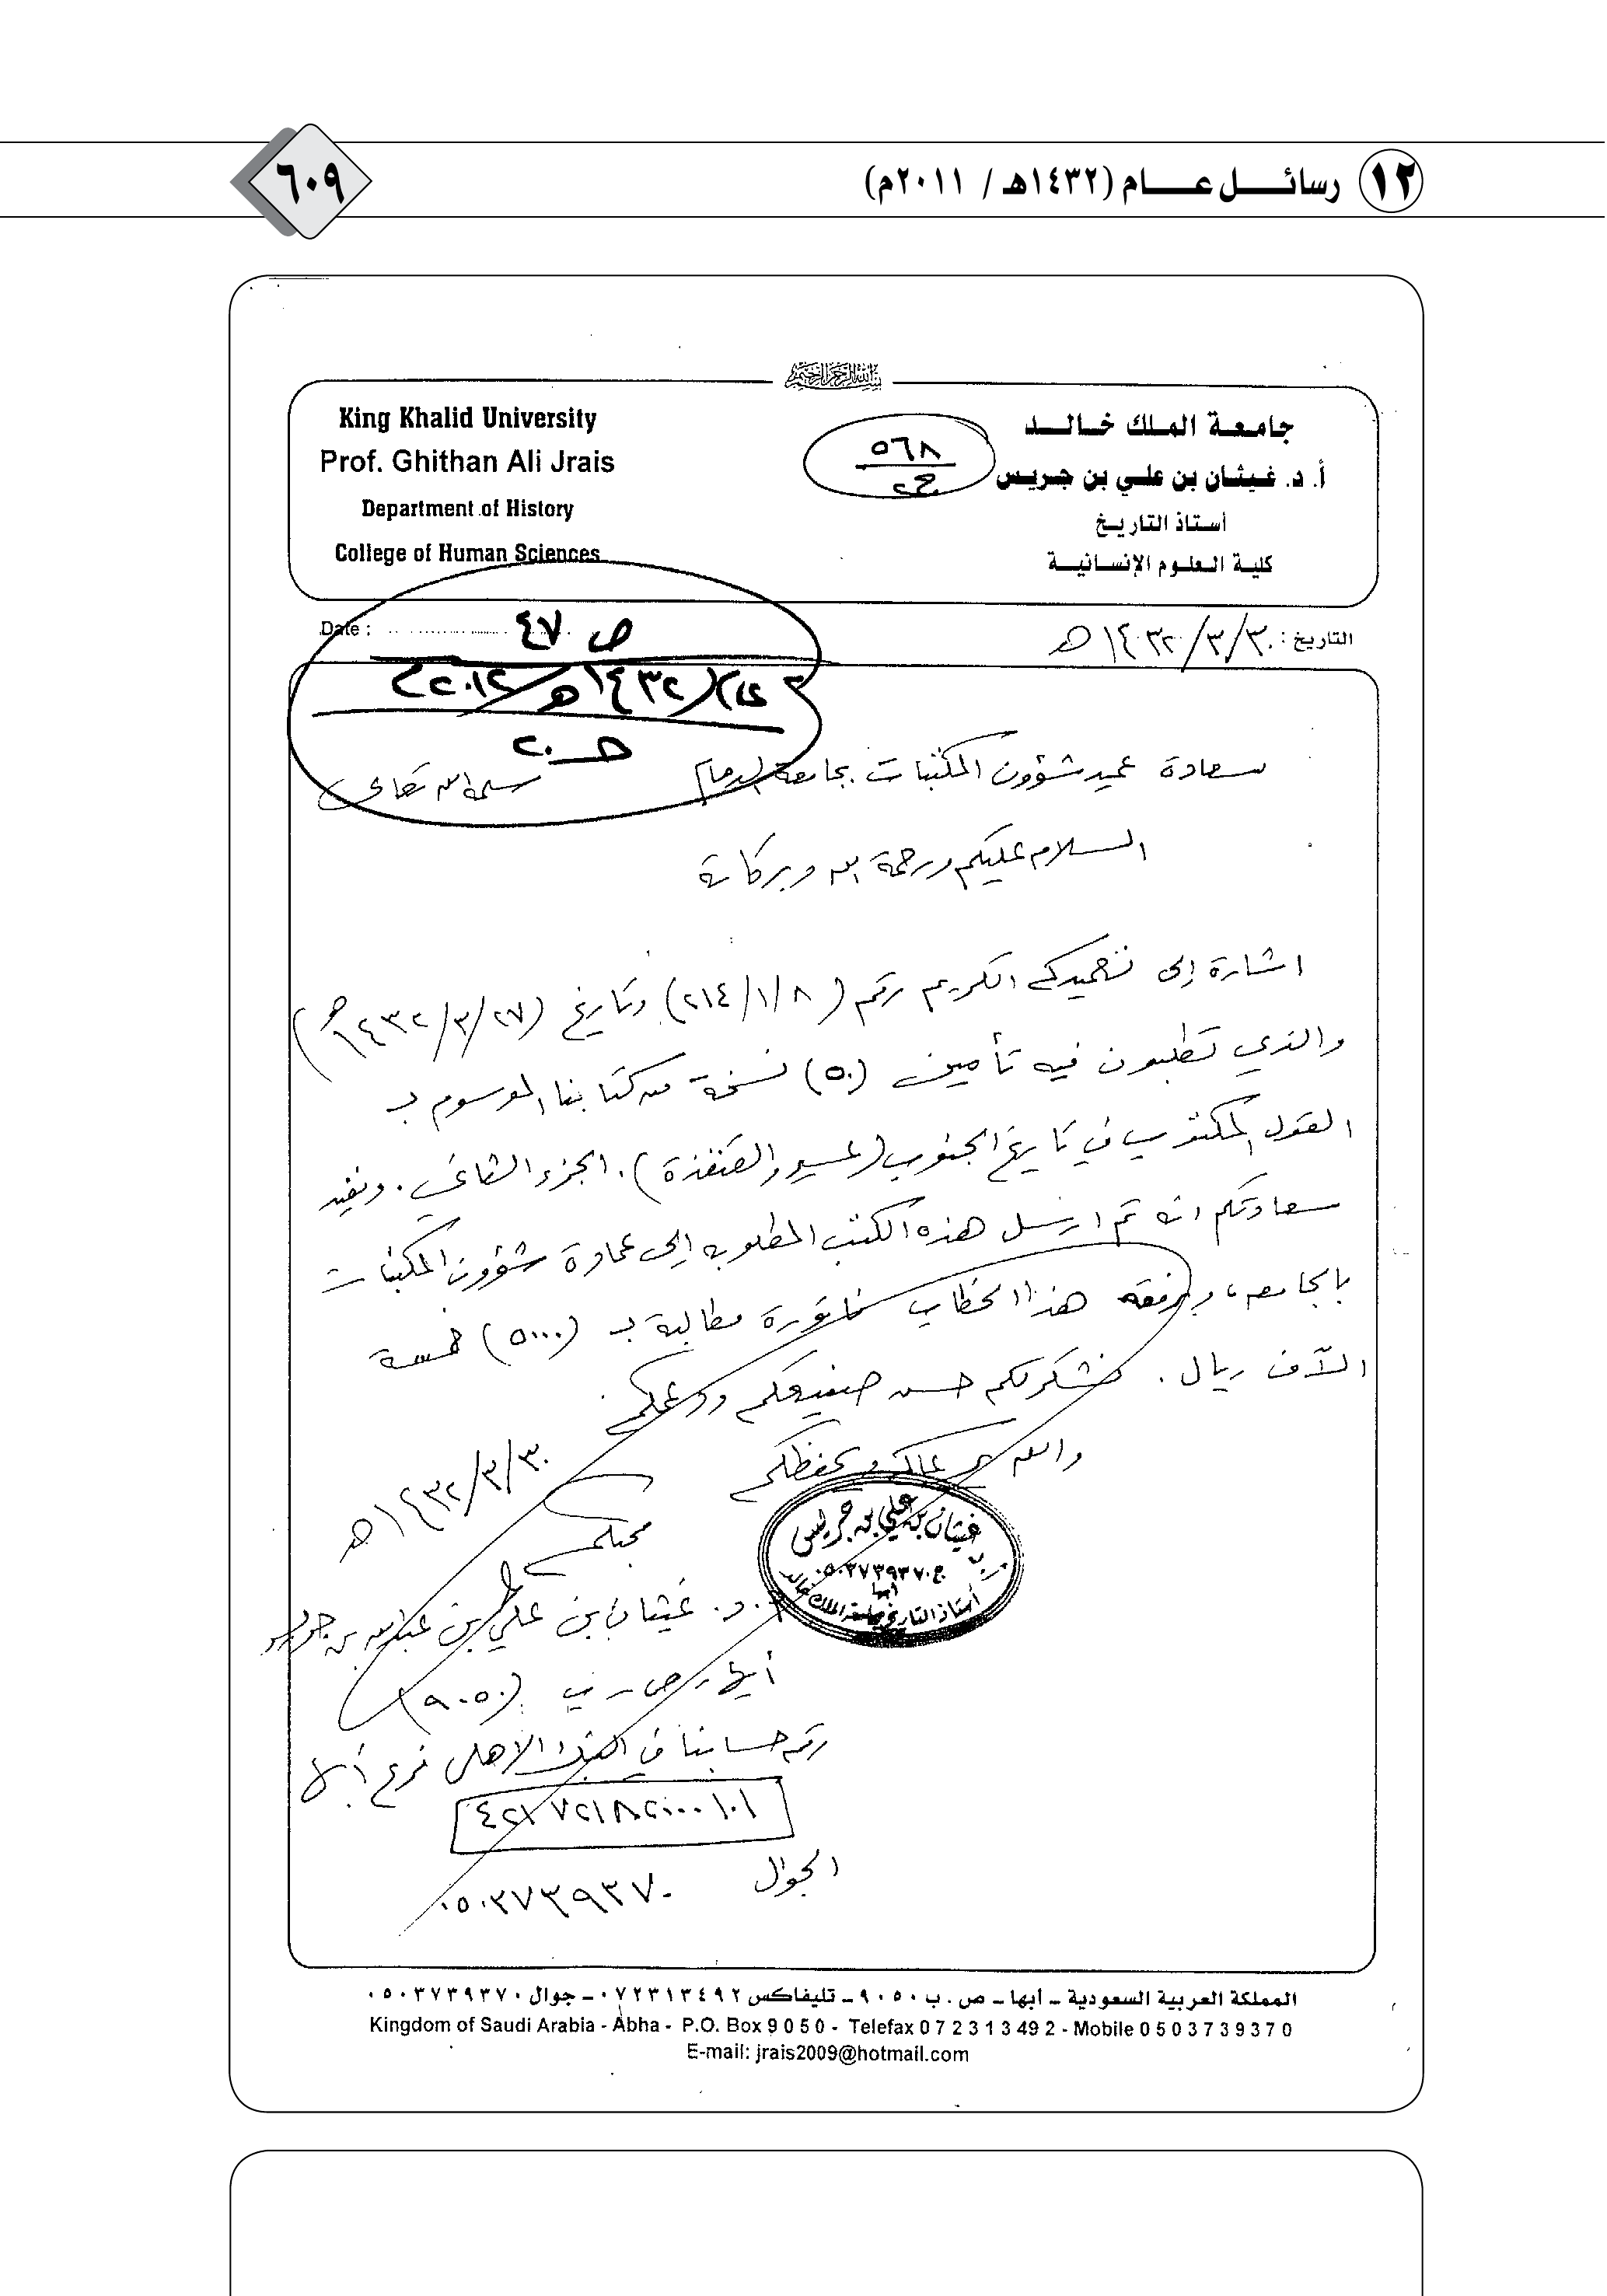 ١٢ رسائل عام (١٤٣٢هـ / ٢٠١١م)
٦٠٩
بسم الله الرحمن الرحيم
جامعة الملك خالد
أ. د. غيثان بن علي بن جريس
أستاذ التاريخ
كلية العلوم الإنسانية
٥٦٨
King Khalid University
Prof. Ghithan Ali Jrais
Department of History
College of Human Sciences
التاريخ : ١٤٣٢/٣/٣٠هـ
Date :
ص ٤٧
سعادة عميد شؤون المكتبات بجامعة الدمام سلمه الله تعالى
السلام عليكم ورحمة الله وبركاته
اشارة إلى تعميدكم الكريم رقم (٢١٤/١/٨) وتاريخ (١٤٣٢/٣/٢٧هـ)
والذي تطلبون فيه تأمين (٥٠) نسخة من كتابنا الموسوم بـ
القول المكتوب في تاريخ الجنوب (عسير والقنفذة). الجزء الثاني. ونفيد
سعادتكم انه تم ارسل هذه الكتب المطلوبه إلى عمادة شؤون المكتبات
بالجامعه، وبرفقه هذا الخطاب فاتورة مطالبة بـ (٥٠٠٠) خمسة
الآف ريال. نشكر لكم حسن صنيعكم ودعمكم
والله يرعاكم ويحفظكم
١٤٣٢/٣/٣٠هـ
محبكم
أ. د. غيثان بن علي بن عبدالله بن جريس
أبها ـ ص ـ ب (٩٠٥٠)
غيثان بن علي بن جريس
ج ٠٥٠٣٧٣٩٣٧٠
أبها
أستاذ التاريخ بجامعة الملك خالد
رقم حسابنا في البنك الاهلي فرع أبها
٤٢١٧٢١٨٢٠٠٠١٠١
الجوال ٠٥٠٣٧٣٩٣٧٠
المملكة العربية السعودية ـ أبها ـ ص . ب ٩٠٥٠ ـ تليفاكس ٠٧٢٣١٣٤٩٢ ـ جوال ٠٥٠٣٧٣٩٣٧٠
Kingdom of Saudi Arabia - Abha - P.O. Box 9 0 5 0 - Telefax 0 7 2 3 1 3 49 2 - Mobile 0 5 0 3 7 3 9 3 7 0
E-mail: jrais2009@hotmail.com